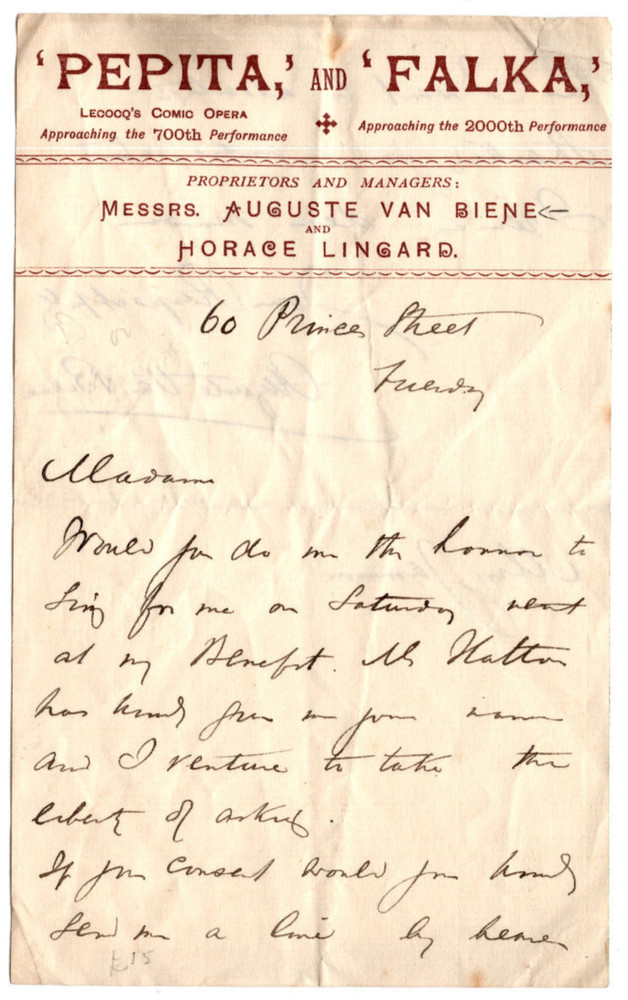 'PEPITA,' AND 'FALKA,'
LECOCQ'S COMIC OPERA
Approaching the 700th Performance
Approaching the 2000th Performance
PROPRIETORS AND MANAGERS:
MESSRS. AUGUSTE VAN BIENE
AND
HORACE LINGARD.
60 Princes Street
Tuesday
Madam
Would you do me the honour to
Sing for me on Saturday next
at my Benefit. Mr Hatton
has kindly given me your name
and I venture to take the
liberty of asking.
If you consent would you kindly
Send me a line by bearer
£15